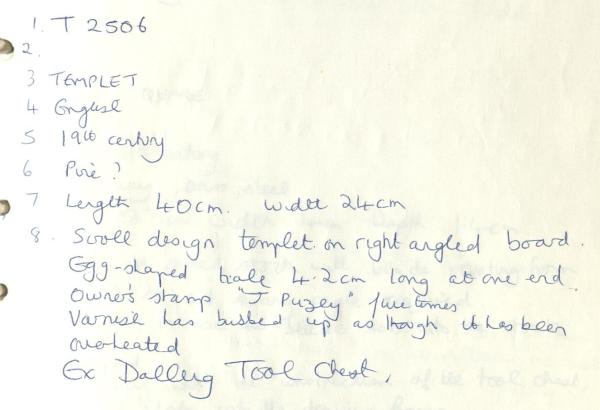 1. T 2506
2.
3 TEMPLET
4 English
5 19th century
6 Pine ?
7 Length 40cm. width 24cm
8. Scroll design templet on right angled board.
Egg-shaped hole 4.2cm long at one end.
Owner's stamp "J Puzey" five times
Varnish has bubbled up as though it has been
overheated
Ex Dalling Tool Chest.